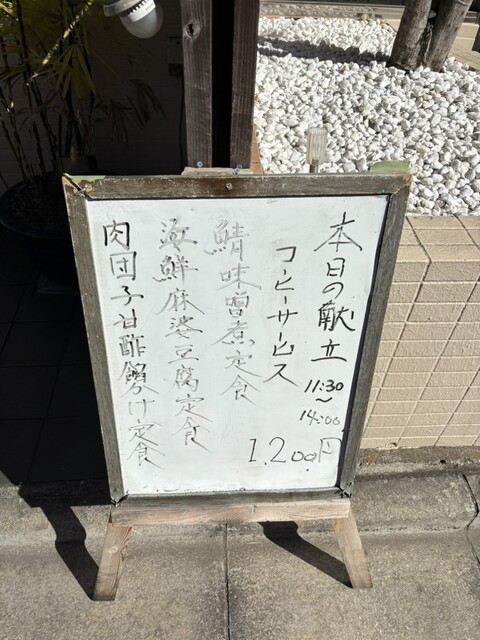 本日の献立
11:30
〜
14:00
コーヒーサービス
1.200円
鯖味噌煮定食
海鮮麻婆豆腐定食
肉団子甘酢餡かけ定食